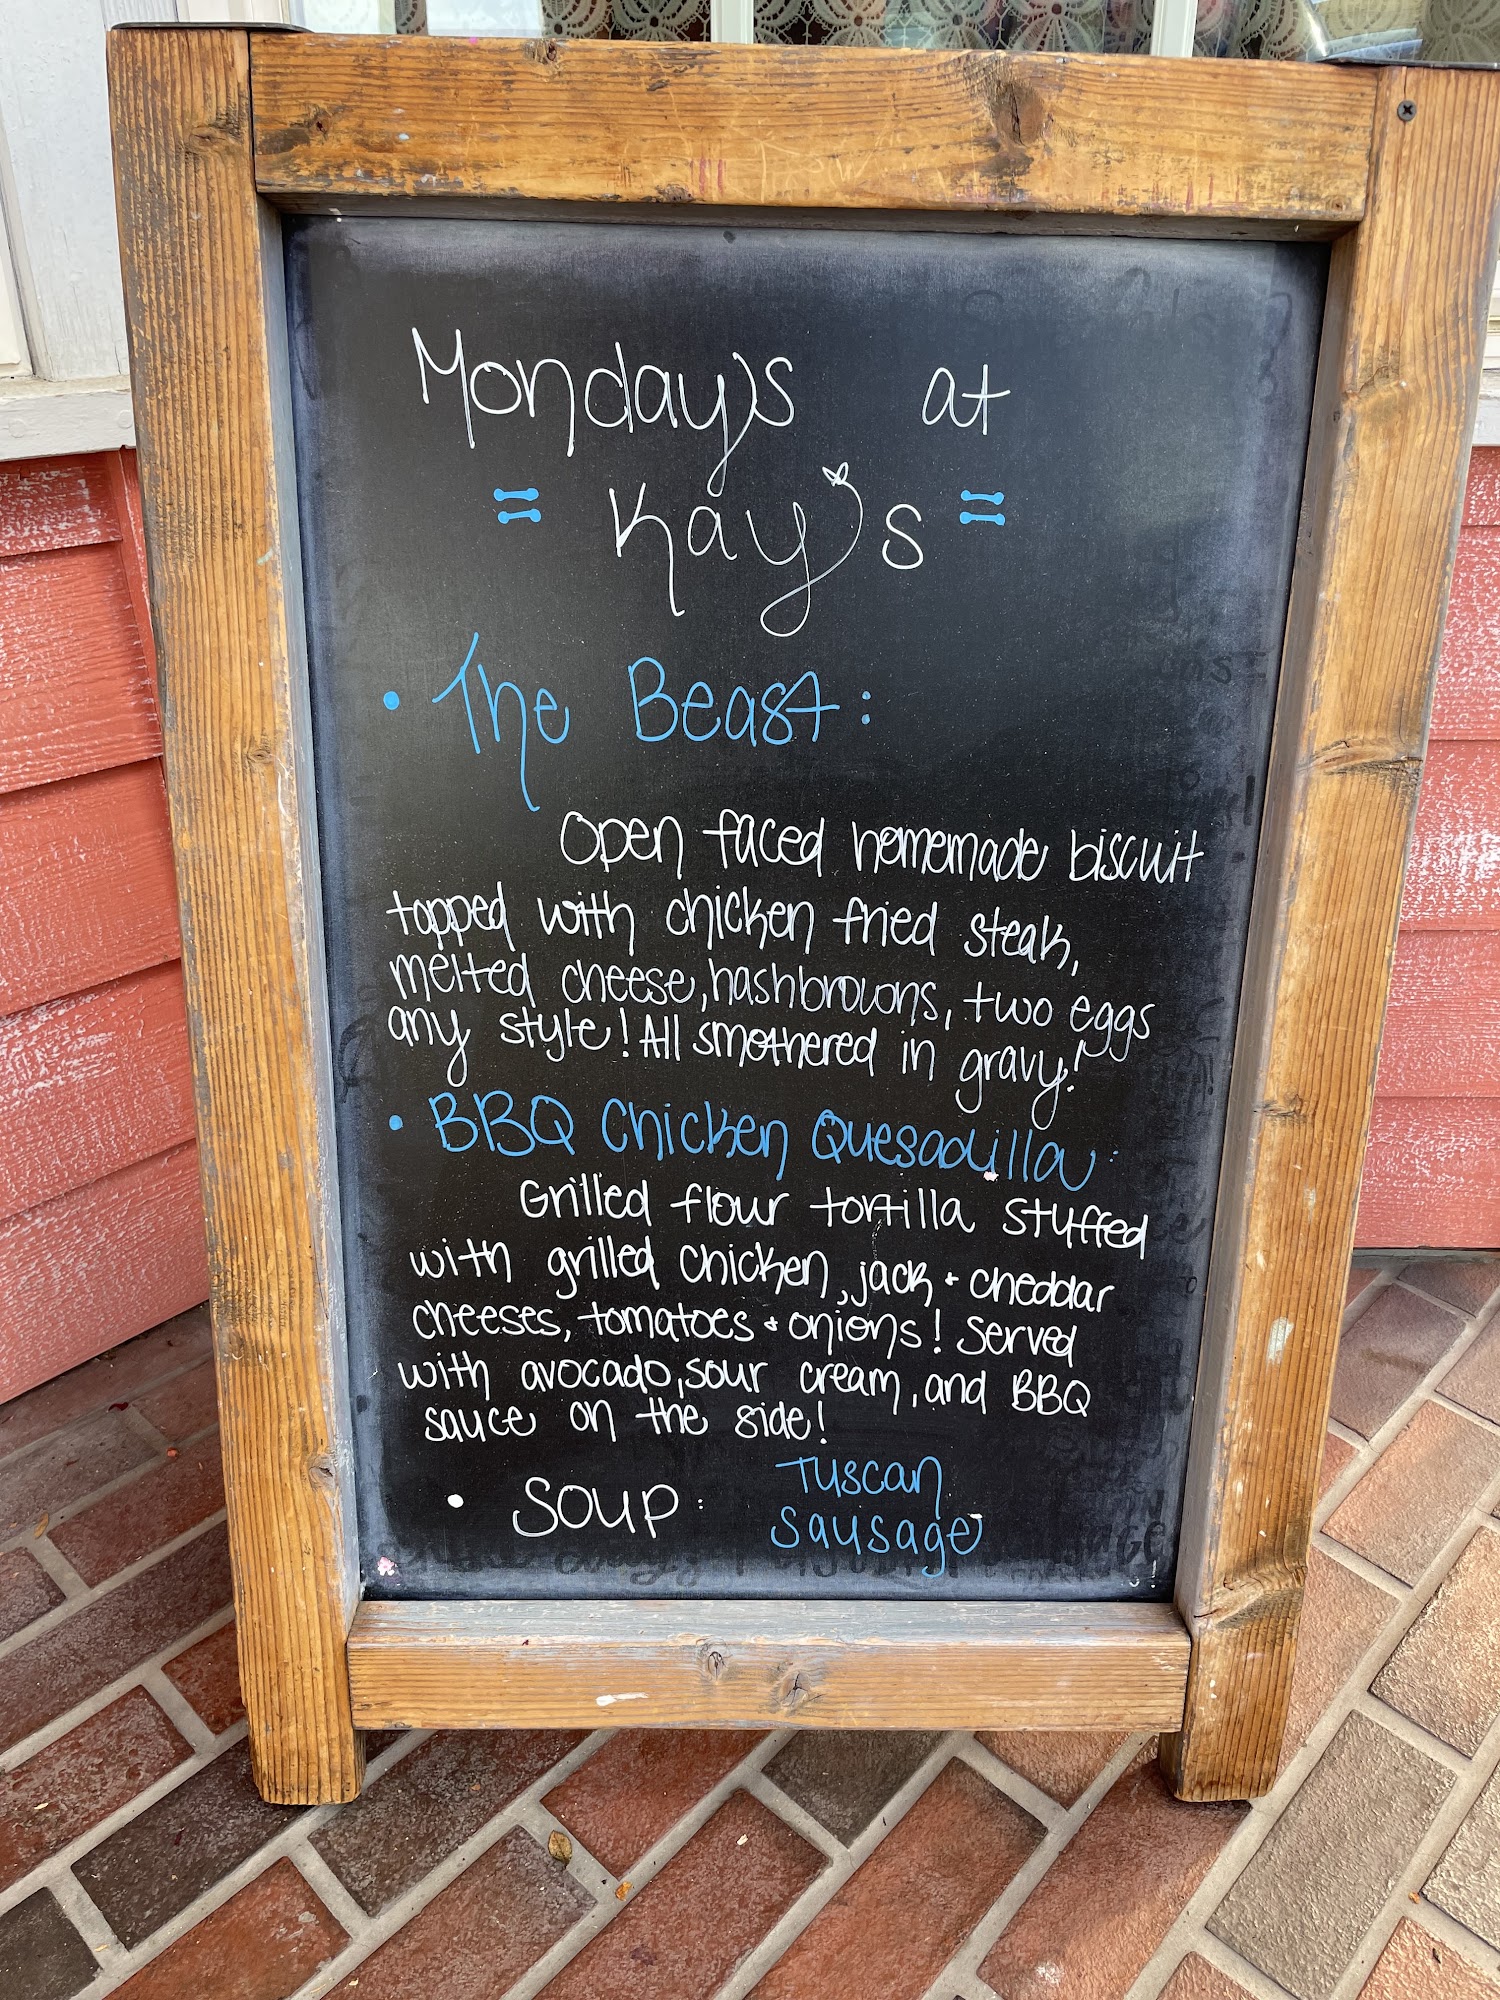 Monday's at
= Kay's =
• The Beast:
Open faced homemade biscuit
topped with chicken fried steak,
melted cheese, hashbrowns, two eggs
any style! All smothered in gravy!
• BBQ Chicken Quesadilla:
Grilled flour tortilla stuffed
with grilled chicken, jack + cheddar
cheeses, tomatoes + onions! Served
with avocado, sour cream, and BBQ
sauce on the side!
• Soup: Tuscan
Sausage